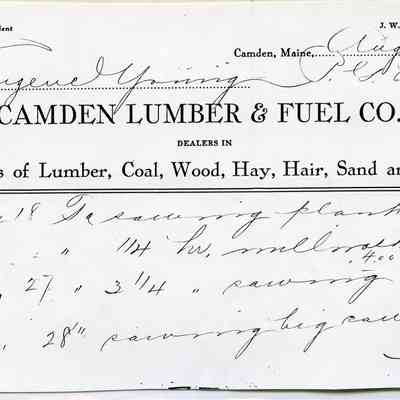 dent J. W.
Camden, Maine, Aug
Eugene Young
CAMDEN LUMBER & FUEL CO.
DEALERS IN
s of Lumber, Coal, Wood, Hay, Hair, Sand an
18 To sawing plank
" 1/4 hr. millwork
4.00
27 " 3 1/4 " sawing
28 " sawing big saw